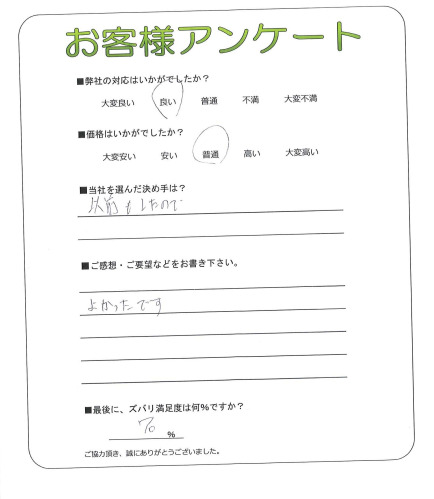 お客様アンケート
■弊社の対応はいかがでしたか？
大変良い 良い 普通 不満 大変不満
■価格はいかがでしたか？
大変安い 安い 普通 高い 大変高い
■当社を選んだ決め手は？
以前もしたので
■ご感想・ご要望などをお書き下さい。
よかったです
■最後に、ズバリ満足度は何％ですか？
70 ％
ご協力頂き、誠にありがとうございました。